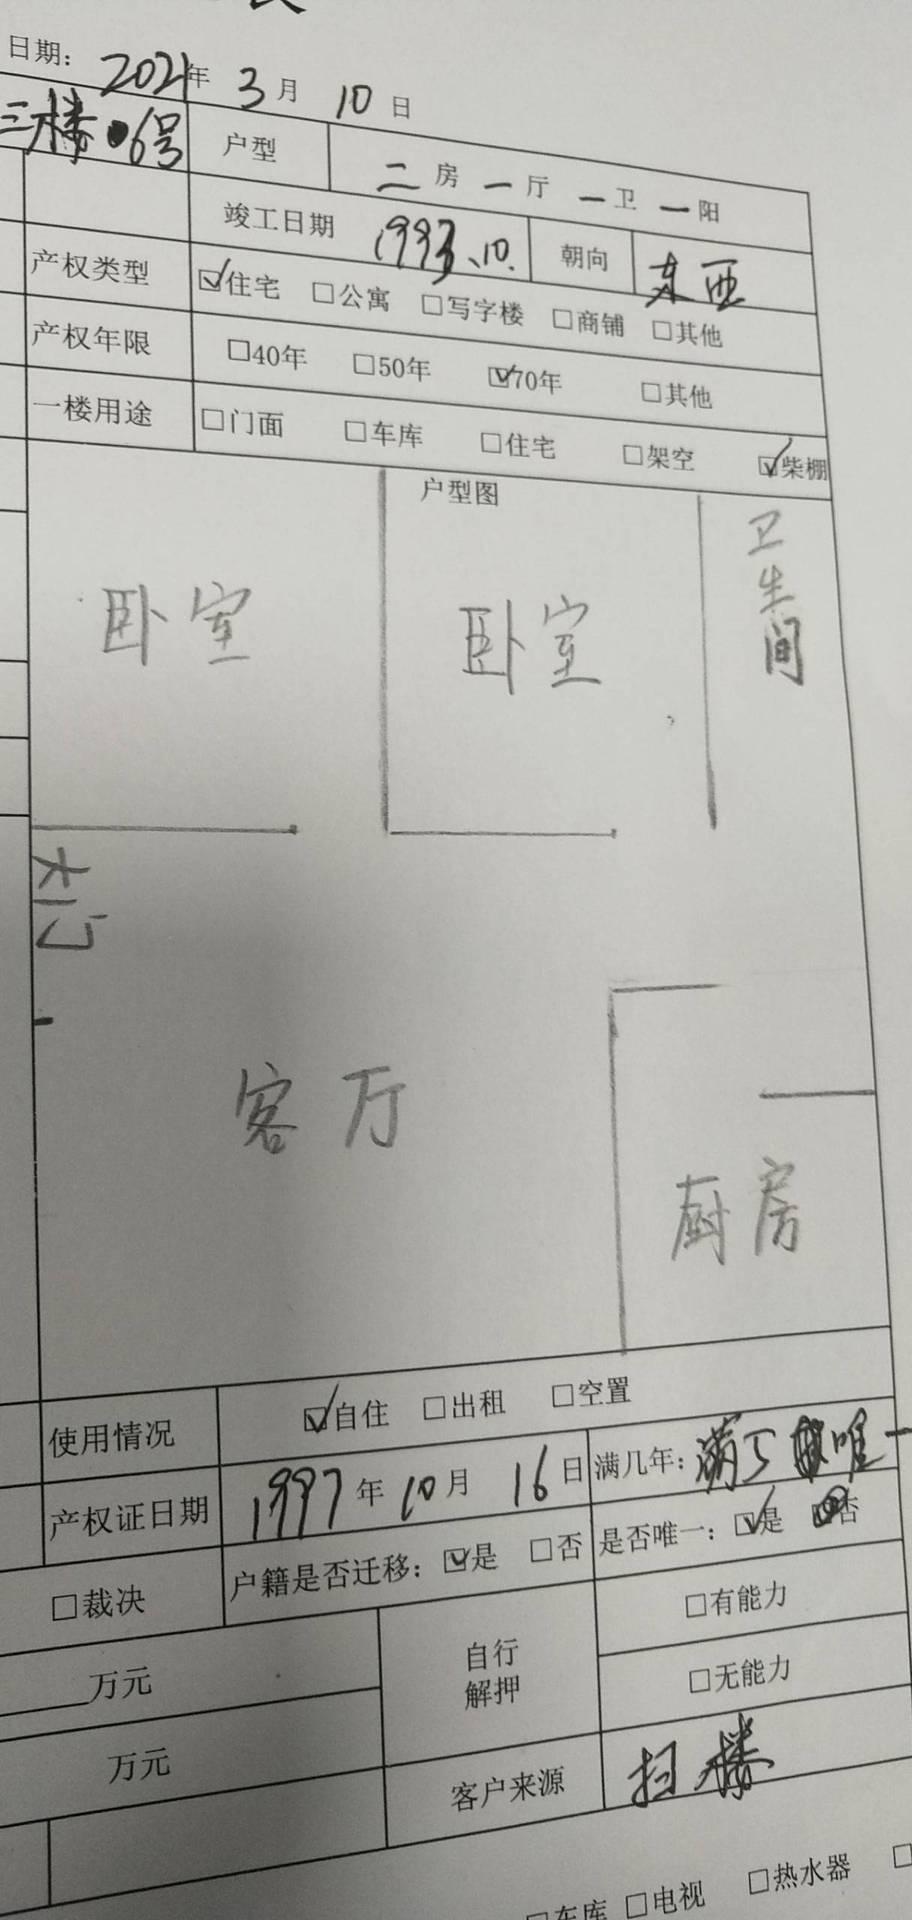 日期： 2021年 3月 10日
三楼 6号 户型 二房一厅一卫一阳
竣工日期 1993.10. 朝向 东西
产权类型 ☑住宅 □公寓 □写字楼 □商铺 □其他
产权年限 □40年 □50年 ☑70年 □其他
一楼用途 □门面 □车库 □住宅 □架空 ☑柴棚
户型图
卧室 卧室 卫生间
大门
客厅
厨房
使用情况 ☑自住 □出租 □空置
产权证日期 1997年 10月 16日 满几年： 满了 唯一
□裁决 户籍是否迁移： ☑是 □否 是否唯一： ☑是 否
自行解押 □有能力
万元 □无能力
万元 客户来源 扫楼
□车库 □电视 □热水器 □